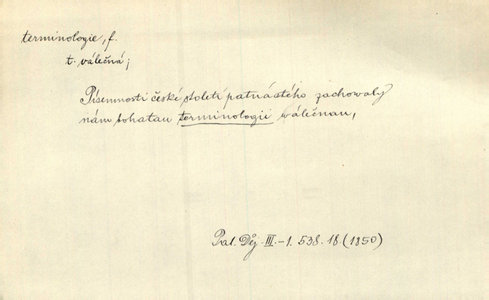 terminologie, f.
t. válečná;
Písemnosti české století patnáctého zachowaly
nám bohatau terminologii válečnau,
Pal. Děj. III.-1. 538. 18 (1850)